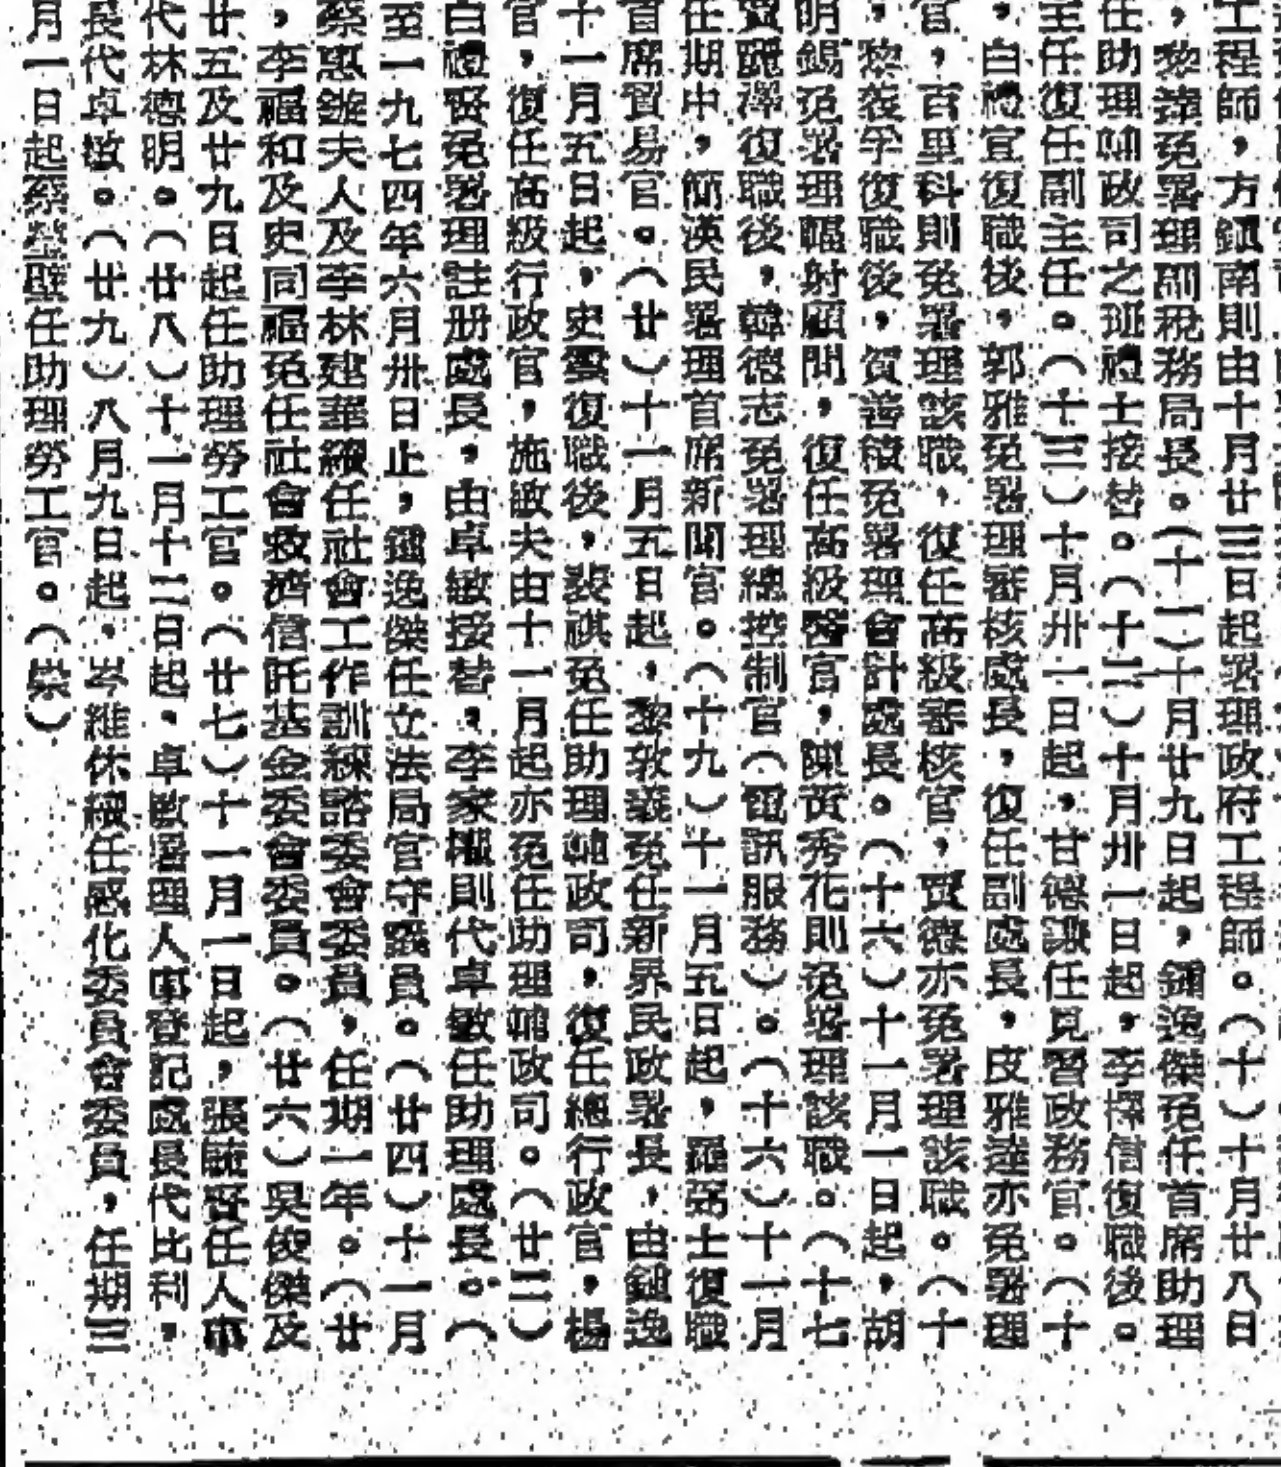 工程師，方鎮南則由十月廿三日起署理政府工程師。（十）十月廿八日
，黎譓免署理副稅務局長。（十一）十月廿九日起，鍾逸傑免任首席助理
任助理輔政司之班禮士接替。（十二）十月卅一日起，李擇信復職後。
主任復任副主任。（十三）十月卅一日起，甘德謙任見習政務官。（十
，白禮宜復職後，郭雅免署理審核處長，復任副處長，皮雅達亦免署理
官，百里科則免署理該職，復任高級審核官，賈德亦免署理該職。（十
，黎裝孚復職後，賀善積免署理會計處長。（十六）十一月一日起，胡
明錫免署理輻射顧問，復任高級醫官，陳黃秀花則免署理該職。（十七
賈麗澤復職後，韓德志免署理總控制官（電訊服務）。（十六）十一月
任期中，簡漢民署理首席新聞官。（十九）十一月五日起，羅弼士復職
首席貿易官。（廿）十一月五日起，黎敦義免任新界民政署長，由鍾逸
十一月五日起，史雲復職後，裴祺免任助理輔政司，復任總行政官，楊
官，復任高級行政官，施敏夫由十一月起亦免任助理輔政司。（廿二）
白禮賢免署理註册處長，由卓敏接替，李家權則代卓敏任助理處長。（
至一九七四年六月卅日止，鍾逸傑任立法局官守議員。（廿四）十一月
蔡惠鏇夫人及李林建華續任社會工作訓練諮委會委員，任期一年。（廿
，李福和及史同福免任社會救濟信託基金委會委員。（廿六）吳俊傑及
廿五及廿九日起任助理勞工官。（廿七）十一月一日起，張毓晉任人事
代林德明。（廿八）十一月十二日起，卓敏署理人事登記處長代比利，
長代卓敏。（廿九）八月九日起，岑維休續任感化委員會委員，任期三
月一日起蔡瑩璧任助理勞工官。（崇）